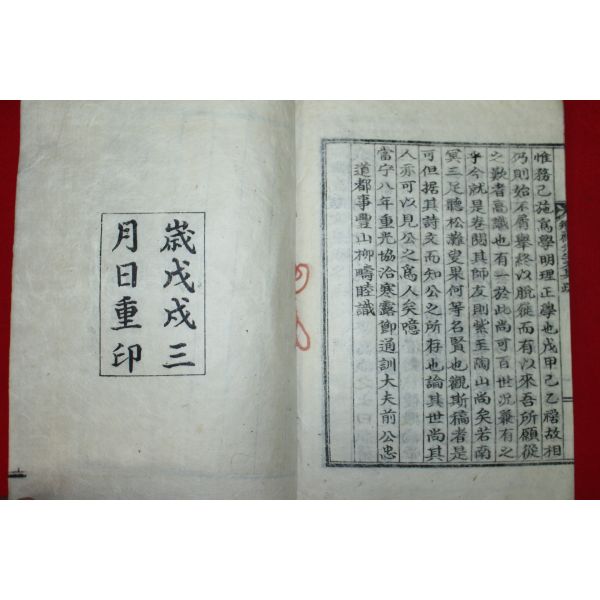 惟務己施爲學明理正學也戊甲己乙稽故相
乃則始不屑舉終以脫屣而有以來吾所願從
之歎者亮識也有一於此尚可百世况兼有之
乎今就是卷閱其師友則紫玉陶山尚矣若南
冥三足聽松灘叟果何等名賢也觀斯稿者是
可但据其詩文而知公之所存也論其世尚其
人亦可以見公之爲人矣噫
當宁八年重光協洽寒露節通訓大夫前公忠
道都事豐山柳疇睦識
歲戊戌三
月日重印